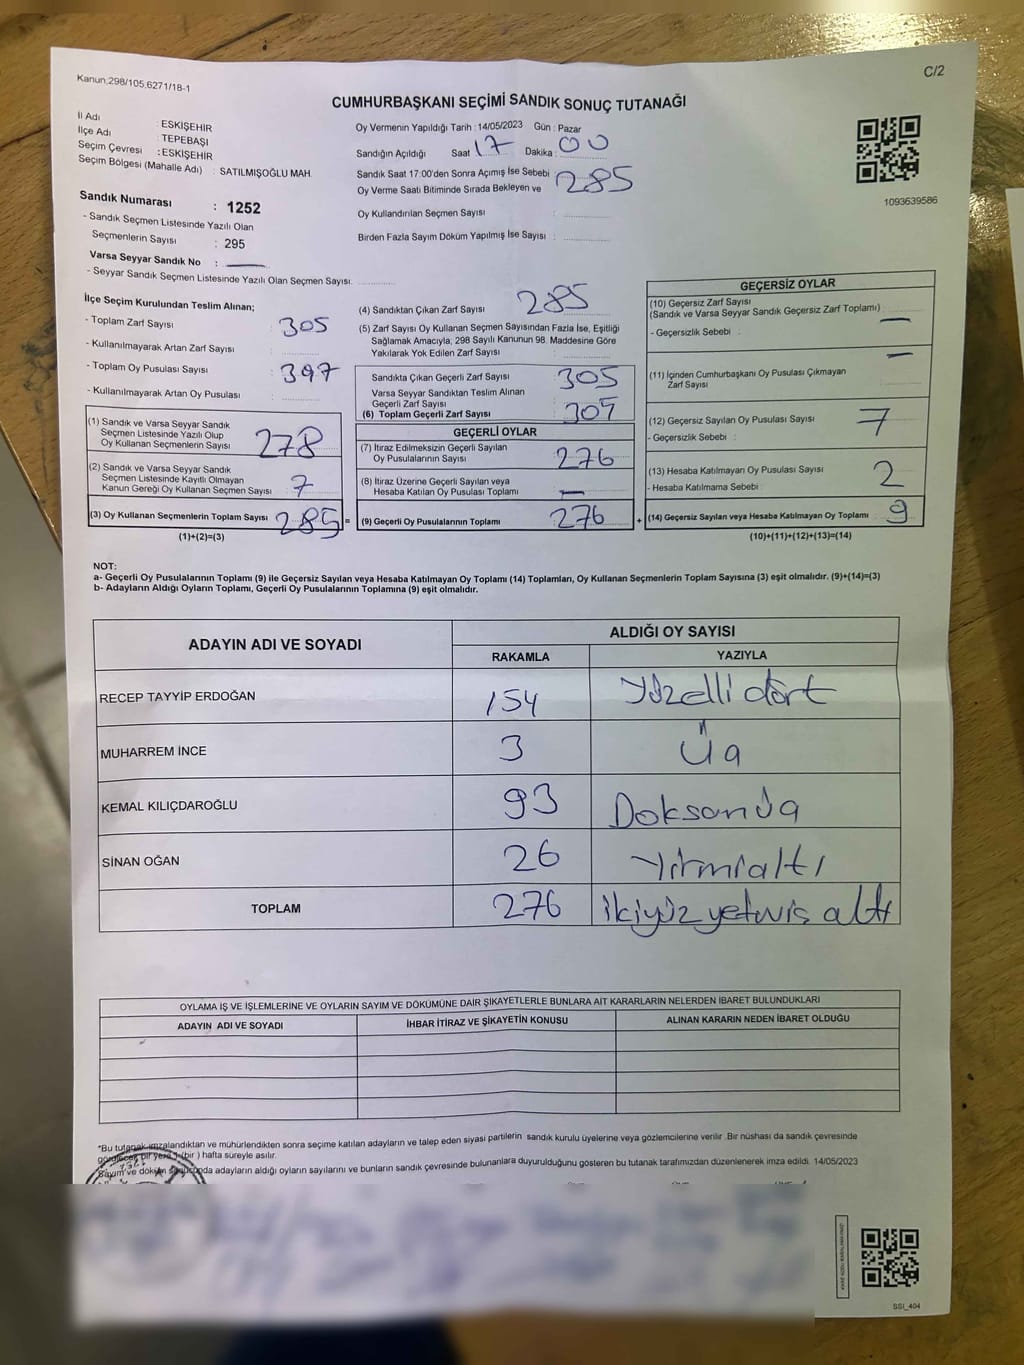 Kanun;298/105,6271/18-1
C/2
CUMHURBAŞKANI SEÇİMİ SANDIK SONUÇ TUTANAĞI
İl Adı : ESKİŞEHİR
İlçe Adı : TEPEBAŞI
Seçim Çevresi : ESKİŞEHİR
Seçim Bölgesi (Mahalle Adı) : SATILMIŞOĞLU MAH.
Sandık Numarası : 1252
- Sandık Seçmen Listesinde Yazılı Olan
Seçmenlerin Sayısı : 295
Varsa Seyyar Sandık No :
- Seyyar Sandık Seçmen Listesinde Yazılı Olan Seçmen Sayısı:
Oy Vermenin Yapıldığı Tarih : 14/05/2023 Gün : Pazar
Sandığın Açıldığı Saat 17 Dakika : 00
Sandık Saat 17:00'den Sonra Açımış İse Sebebi :
Oy Verme Saati Bitiminde Sırada Bekleyen ve 285
Oy Kullandırılan Seçmen Sayısı :
Birden Fazla Sayım Döküm Yapılmış İse Sayısı :
1093639586
İlçe Seçim Kurulundan Teslim Alınan;
- Toplam Zarf Sayısı : 305
- Kullanılmayarak Artan Zarf Sayısı :
- Toplam Oy Pusulası Sayısı : 397
- Kullanılmayarak Artan Oy Pusulası :
(1) Sandık ve Varsa Seyyar Sandık
Seçmen Listesinde Yazılı Olup
Oy Kullanan Seçmenlerin Sayısı 278
(2) Sandık ve Varsa Seyyar Sandık
Seçmen Listesinde Kayıtlı Olmayan
Kanun Gereği Oy Kullanan Seçmen Sayısı : 7
(3) Oy Kullanan Seçmenlerin Toplam Sayısı 285 =
(1)+(2)=(3)
(4) Sandıktan Çıkan Zarf Sayısı : 285
(5) Zarf Sayısı Oy Kullanan Seçmen Sayısından Fazla İse, Eşitliği
Sağlamak Amacıyla, 298 Sayılı Kanunun 98. Maddesine Göre
Yakılarak Yok Edilen Zarf Sayısı :
Sandıkta Çıkan Geçerli Zarf Sayısı : 305
Varsa Seyyar Sandıktan Teslim Alınan
Geçerli Zarf Sayısı :
(6) Toplam Geçerli Zarf Sayısı :
GEÇERLİ OYLAR
(7) İtiraz Edilmeksizin Geçerli Sayılan
Oy Pusulalarının Sayısı : 276
(8) İtiraz Üzerine Geçerli Sayılan veya
Hesaba Katılan Oy Pusulası Toplamı :
(9) Geçerli Oy Pusulalarının Toplamı : 276 +
GEÇERSİZ OYLAR
(10) Geçersiz Zarf Sayısı
(Sandık ve Varsa Seyyar Sandık Geçersiz Zarf Toplamı) :
- Geçersizlik Sebebi :
(11) İçinden Cumhurbaşkanı Oy Pusulası Çıkmayan
Zarf Sayısı :
(12) Geçersiz Sayılan Oy Pusulası Sayısı : 7
- Geçersizlik Sebebi :
(13) Hesaba Katılmayan Oy Pusulası Sayısı : 2
- Hesaba Katılmama Sebebi :
(14) Geçersiz Sayılan veya Hesaba Katılmayan Oy Toplamı : 9
(10)+(11)+(12)+(13)=(14)
NOT:
a- Geçerli Oy Pusulalarının Toplamı (9) ile Geçersiz Sayılan veya Hesaba Katılmayan Oy Toplamı (14) Toplamları, Oy Kullanan Seçmenlerin Toplam Sayısına (3) eşit olmalıdır. (9)+(14)=(3)
b- Adayların Aldığı Oyların Toplamı, Geçerli Oy Pusulalarının Toplamına (9) eşit olmalıdır.
ADAYIN ADI VE SOYADI ALDIĞI OY SAYISI
RAKAMLA YAZIYLA
RECEP TAYYİP ERDOĞAN 154 Yüzelli dört
MUHARREM İNCE 3 Üç
KEMAL KILIÇDAROĞLU 93 Doksanüç
SİNAN OĞAN 26 Yirmialtı
TOPLAM 276 ikiyüz yetmiş altı
OYLAMA İŞ VE İŞLEMLERİNE VE OYLARIN SAYIM VE DÖKÜMÜNE DAİR ŞİKAYETLERLE BUNLARA AİT KARARLARIN NELERDEN İBARET BULUNDUKLARI
ADAYIN ADI VE SOYADI İHBAR İTİRAZ VE ŞİKAYETİN KONUSU ALINAN KARARIN NEDEN İBARET OLDUĞU
*Bu tutanak imzalandıktan ve mühürlendikten sonra seçime katılan adayların ve talep eden siyasi partilerin sandık kurulu üyelerine veya gözlemcilerine verilir .Bir nüshası da sandık çevresinde
görülecek bir yere 1 (bir ) hafta süreyle asılır.
Sayım ve döküm sonucunda adayların aldığı oyların sayılarını ve bunların sandık çevresinde bulunanlara duyurulduğunu gösteren bu tutanak tarafımızdan düzenlenerek imza edildi. 14/05/2023
SSI_404